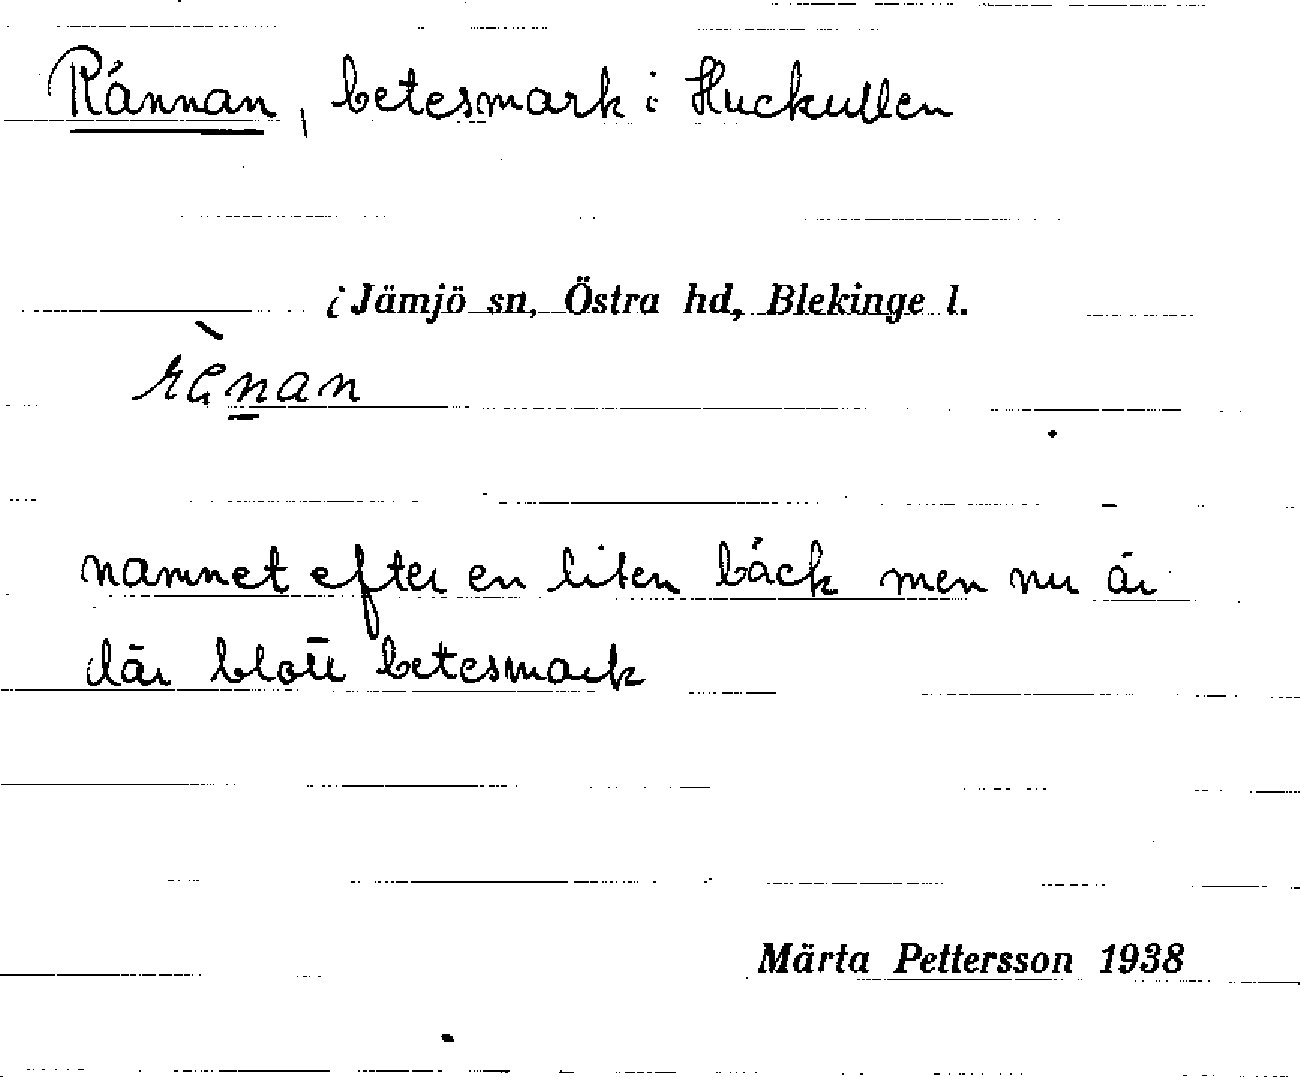 Rännan, betesmark i Huckullen
i Jämjö sn, Östra hd, Blekinge l.
namnet efter en liten bäck men nu är
där blott betesmark
Märta Pettersson 1938